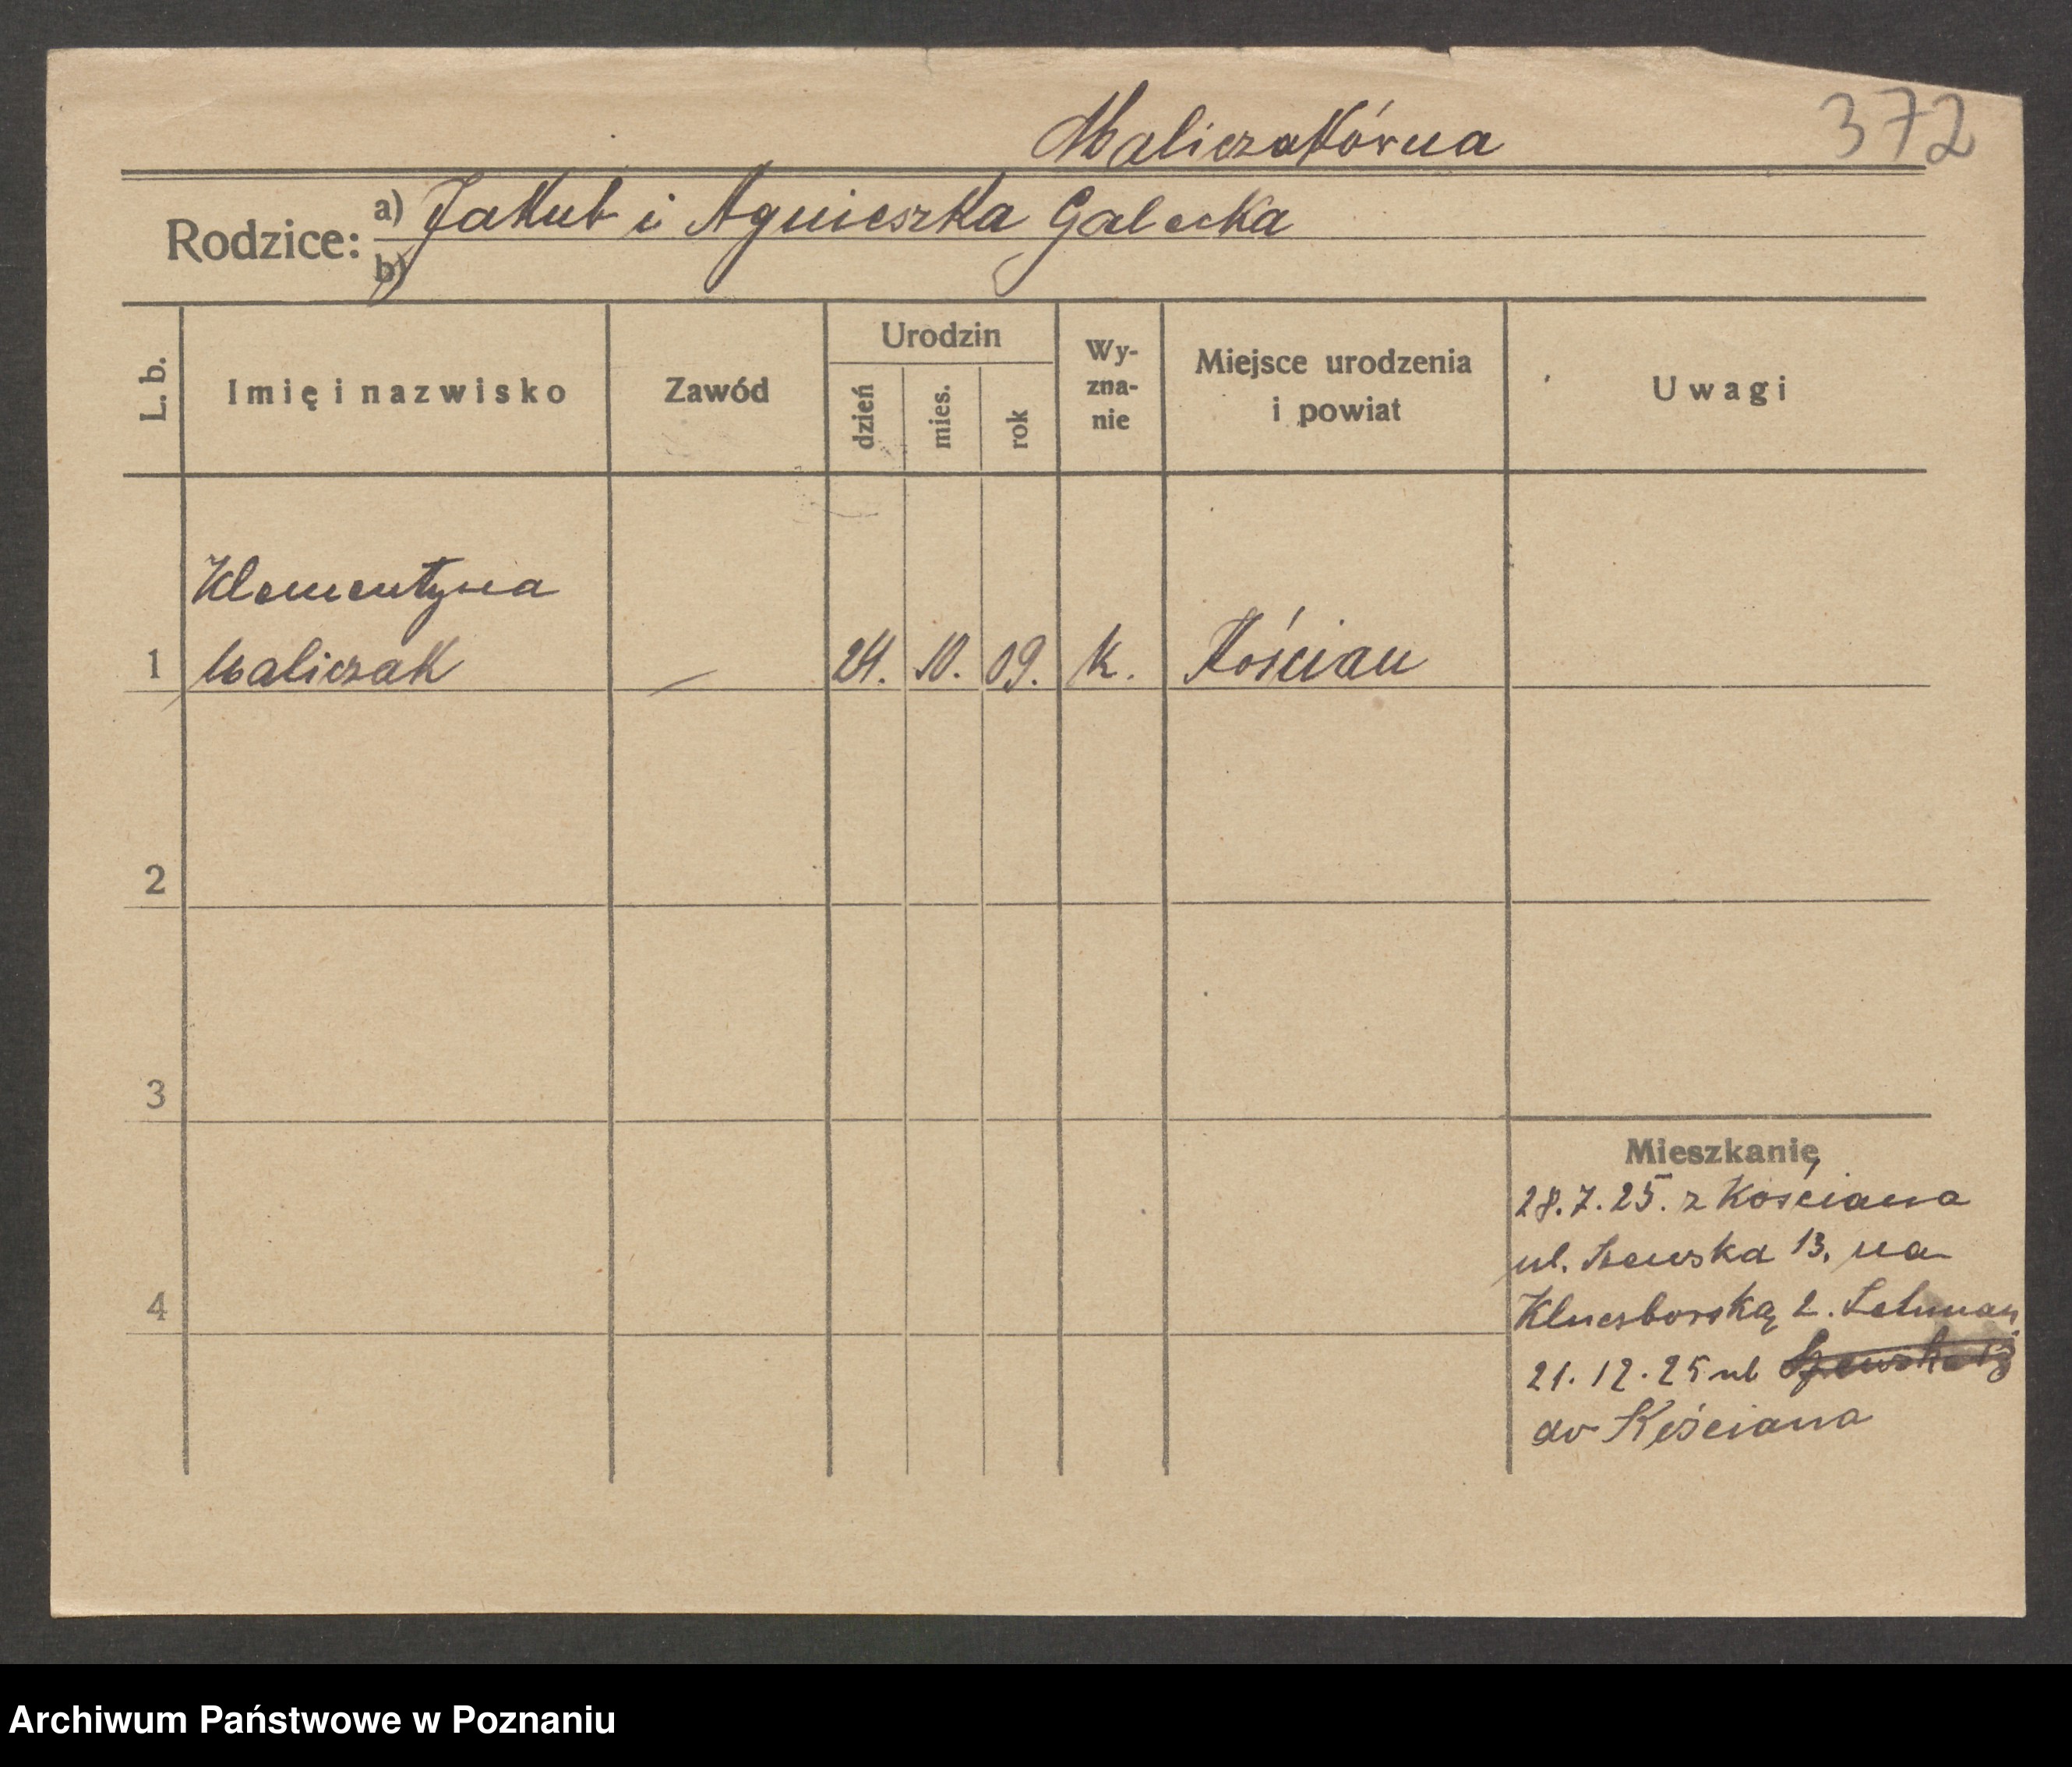 Maliczakówna
372
Rodzice: a) Jakub i Agnieszka Galecka
b)
L. b. Imię i nazwisko Zawód Urodzin dzień mies. rok Wy-zna-nie Miejsce urodzenia i powiat Uwagi
Klementyna
1 Maliczak — 24. 10. 09. k. Kościan
2
3
Mieszkanie
28.7.25. z Kościana
ul. 13. na
4 Kluczborską 2. Lehman
21.12.25 ul Szewska 13
do Kościana
Archiwum Państwowe w Poznaniu